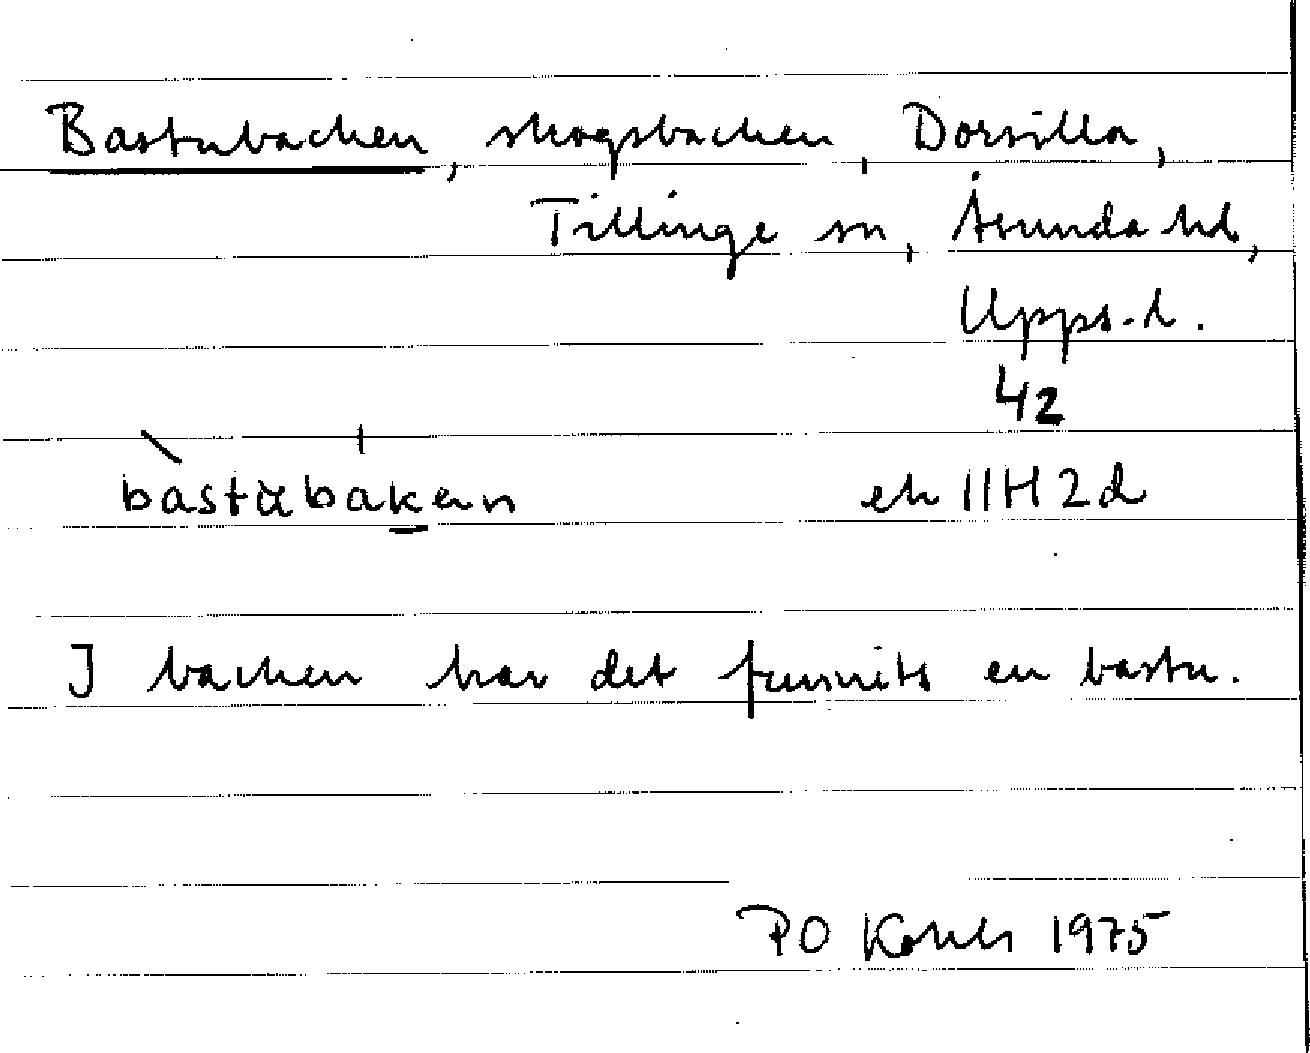 Bastubacken, skogsbacken, Dorsilla,
Tillinge sn, Åsunda hd,
Upps.l.
42
bastubaken ek 11H2d
I backen har det funnits en bastu.
PO 1975